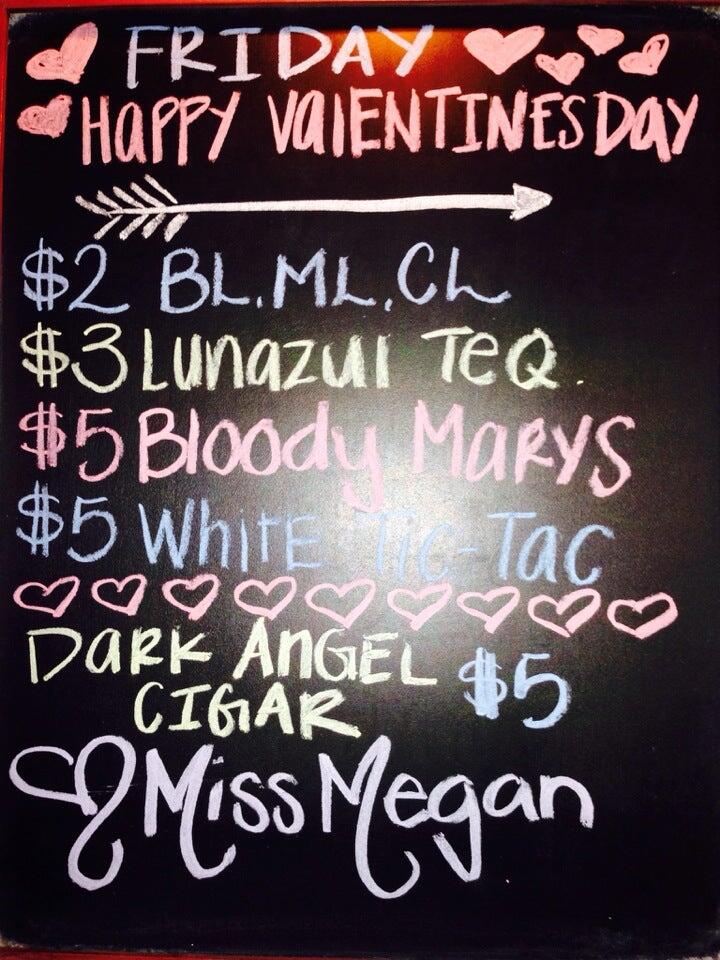 FRIDAY
HAPPY VALENTINES DAY
$2 BL, ML, CL
$3 Lunazul TeQ.
$5 Bloody MARYS
$5 WhitE Tic-Tac
DaRK ANGEL
CIGAR $5
Miss Megan